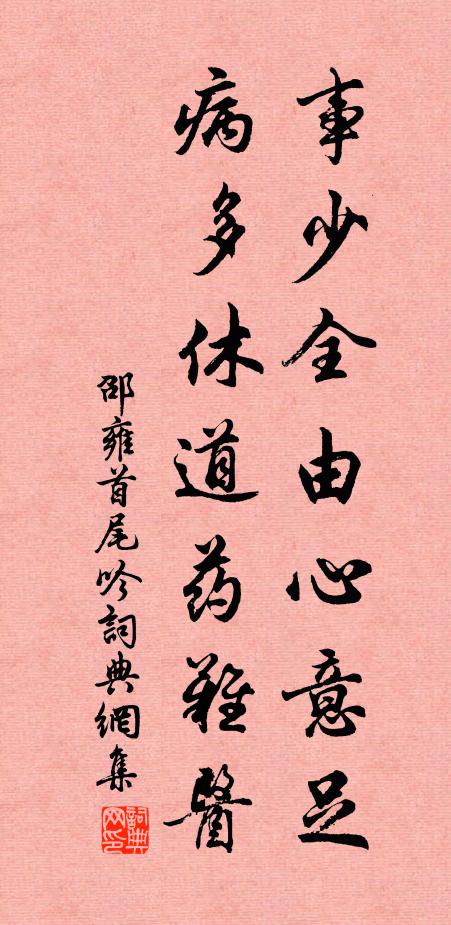 事少全由心意足
病多休道药難醫
邵雍首尾吟詞典網集
詞典网印